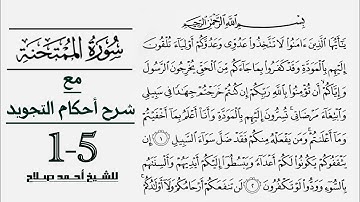 بِسْمِ اللَّهِ الرَّحْمَٰنِ الرَّحِيمِ
يَٰٓأَيُّهَا ٱلَّذِينَ ءَامَنُوا۟ لَا تَتَّخِذُوا۟ عَدُوِّى وَعَدُوَّكُمْ أَوْلِيَآءَ تُلْقُونَ
إِلَيْهِم بِٱلْمَوَدَّةِ وَقَدْ كَفَرُوا۟ بِمَا جَآءَكُم مِّنَ ٱلْحَقِّ يُخْرِجُونَ ٱلرَّسُولَ
وَإِيَّاكُمْ أَن تُؤْمِنُوا۟ بِٱللَّهِ رَبِّكُمْ إِن كُنتُمْ خَرَجْتُمْ جِهَٰدًا فِى سَبِيلِى
وَٱبْتِغَآءَ مَرْضَاتِى تُسِرُّونَ إِلَيْهِم بِٱلْمَوَدَّةِ وَأَنَا۠ أَعْلَمُ بِمَآ أَخْفَيْتُمْ
وَمَآ أَعْلَنتُمْ وَمَن يَفْعَلْهُ مِنكُمْ فَقَدْ ضَلَّ سَوَآءَ ٱلسَّبِيلِ ١ إِن
يَثْقَفُوكُمْ يَكُونُوا۟ لَكُمْ أَعْدَآءً وَيَبْسُطُوٓا۟ إِلَيْكُمْ أَيْدِيَهُمْ وَأَلْسِنَتَهُم
بِٱلسُّوٓءِ وَوَدُّوا۟ لَوْ تَكْفُرُونَ ٢ لَن تَنفَعَكُمْ أَرْحَامُكُمْ وَلَآ أَوْلَٰدُكُمْ
سُورَةُ الْمُمْتَحِنَةِ
مع
شرح أحكام التجويد
1-5
للشيخ أحمد صلاح